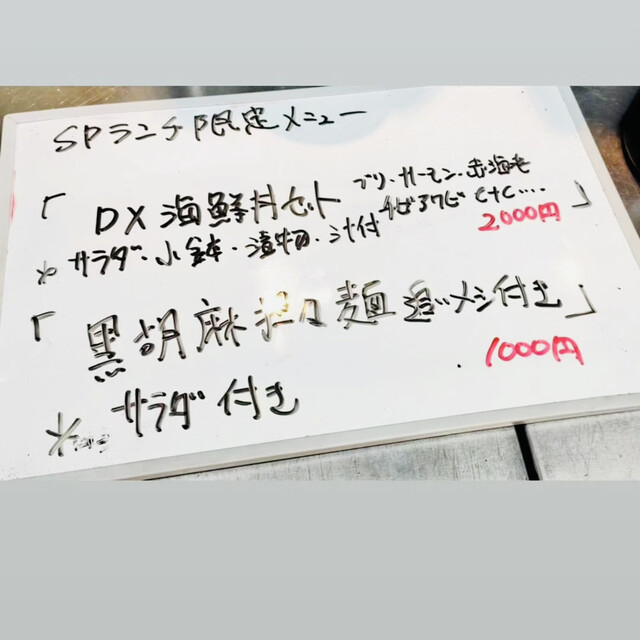 SPランチ限定メニュー
「DX海鮮丼セット ブリ・サーモン・赤海老
チビアワビ etc....」
※サラダ・小鉢・漬物・汁付 2000円
「黒胡麻担々麺 追いメシ付き」
1000円
※サラダ付き